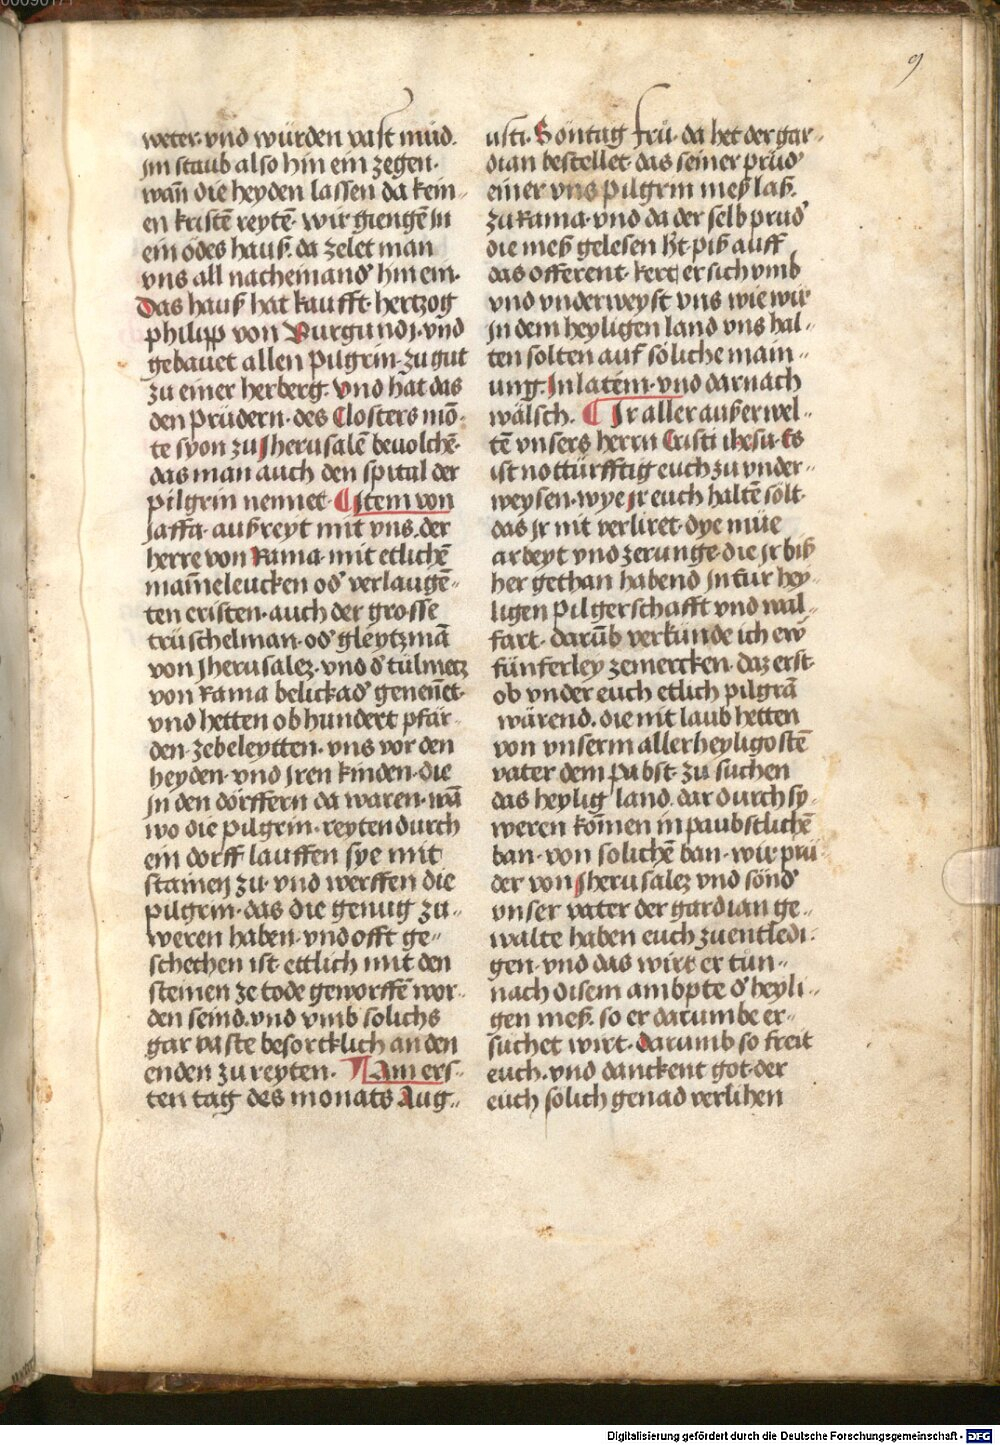 9
weter · vnd würden vast müd.
jm staub also hin ein zegen ·
wañ die heyden lassen da kein„
en kristē reytē · wir giengē in
ein ödes hauß. da zelet man
vns all nacheinand' hin ein ·
Das hauß hat kaufft · hertzog
philipp von Purgundj · vnd
gebauet allen pilgrin · zu gut
zu einer herberg. vnd hat das
den prüdern · des Closters mō„
te syon zu Jherusalē beuolchē ·
das man auch den spital der
pilgrin nennet · ¶ Item von
Jaffa · außreyt mit vns. der
herre von Rama · mit etlichē
mam̄eleucken od' verlaugē„
ten cristen · auch der grosse
trüschelman · od' gleytzmā
von Jherusalez · vnd d' tülmetz
von Rama belickad' genen̄et ·
vnd hetten ob hundert pfär„
den · zebeleytten · vns vor den
heyden · vnd jren kinden · die
jn den dörffern da waren · wā
wo die pilgrin · reyten durch
ein dorff lauffen sye mit
stainen zu · vnd werffen die
pilgrin · das die genug zu„
weren haben · vnd offt ge„
schechen ist ettlich mit den
steinen ze tode geworffē wor„
den seind. vnd vmb solichs
gar vaste besorcklich an den
enden zu reyten · ¶ Am ers„
ten tag des monats Aug„
usti · Söntag frü · da het der gar„
dian bestellet das seiner prüd'
einer vns pilgrin meß laß.
zu Rama · vnd da der selb prud'
die meß gelesen het · piß auff
das offerent · kert er sich vmb
vnd vnderweyst vns wie wir
jn dem heyligen land vns hal„
ten solten auf söliche main„
ung. In latein · vnd darnach
wälsch. ¶ Ir aller außerwel„
tē vnsers herrn Cristi ihesu · Es
ist nottürfftig euch zu vnder„
weysen · wye jr euch haltē sölt ·
das jr nit verliret · dye müe
arbeyt vnd zerunge · die jr biß
her gethan habend jn eur hey„
ligen pilgerschafft vnd wal„
fart · darūb verkünde ich ew
fünferley zemercken · daz erst ·
ob vnder euch etlich pilgrā
wärend. die nit laub hetten
von vnserm allerheyligostē
vater dem pabst · zu suchen
das heylig land. dar durch sy„
weren kōmen in paubstlichē
ban · von solichē ban · wir prü„
der von Jherusalez vnd sönd'
vnser vater der gardian ge„
walte haben euch zu entledi„
gen · vnd das wirt er tün„
nach disem ambpte d' heyli„
gen meß. so er darumbe er„
suchet wirt · Darumb so freit
euch · vnd danckent got · der
euch sölich genad verlihen
Digitalisierung gefördert durch die Deutsche Forschungsgemeinschaft - DFG